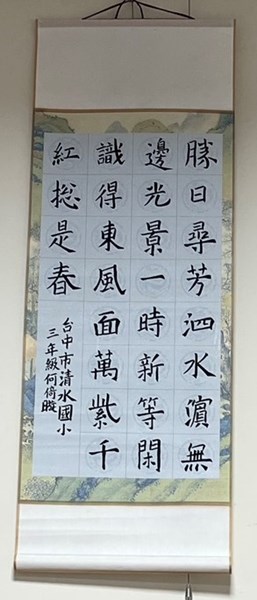 勝日尋芳泗水濵無
邊光景一時新等閑
識得東風面萬紫千
紅総是春
台中市清水國小
三年級何侑